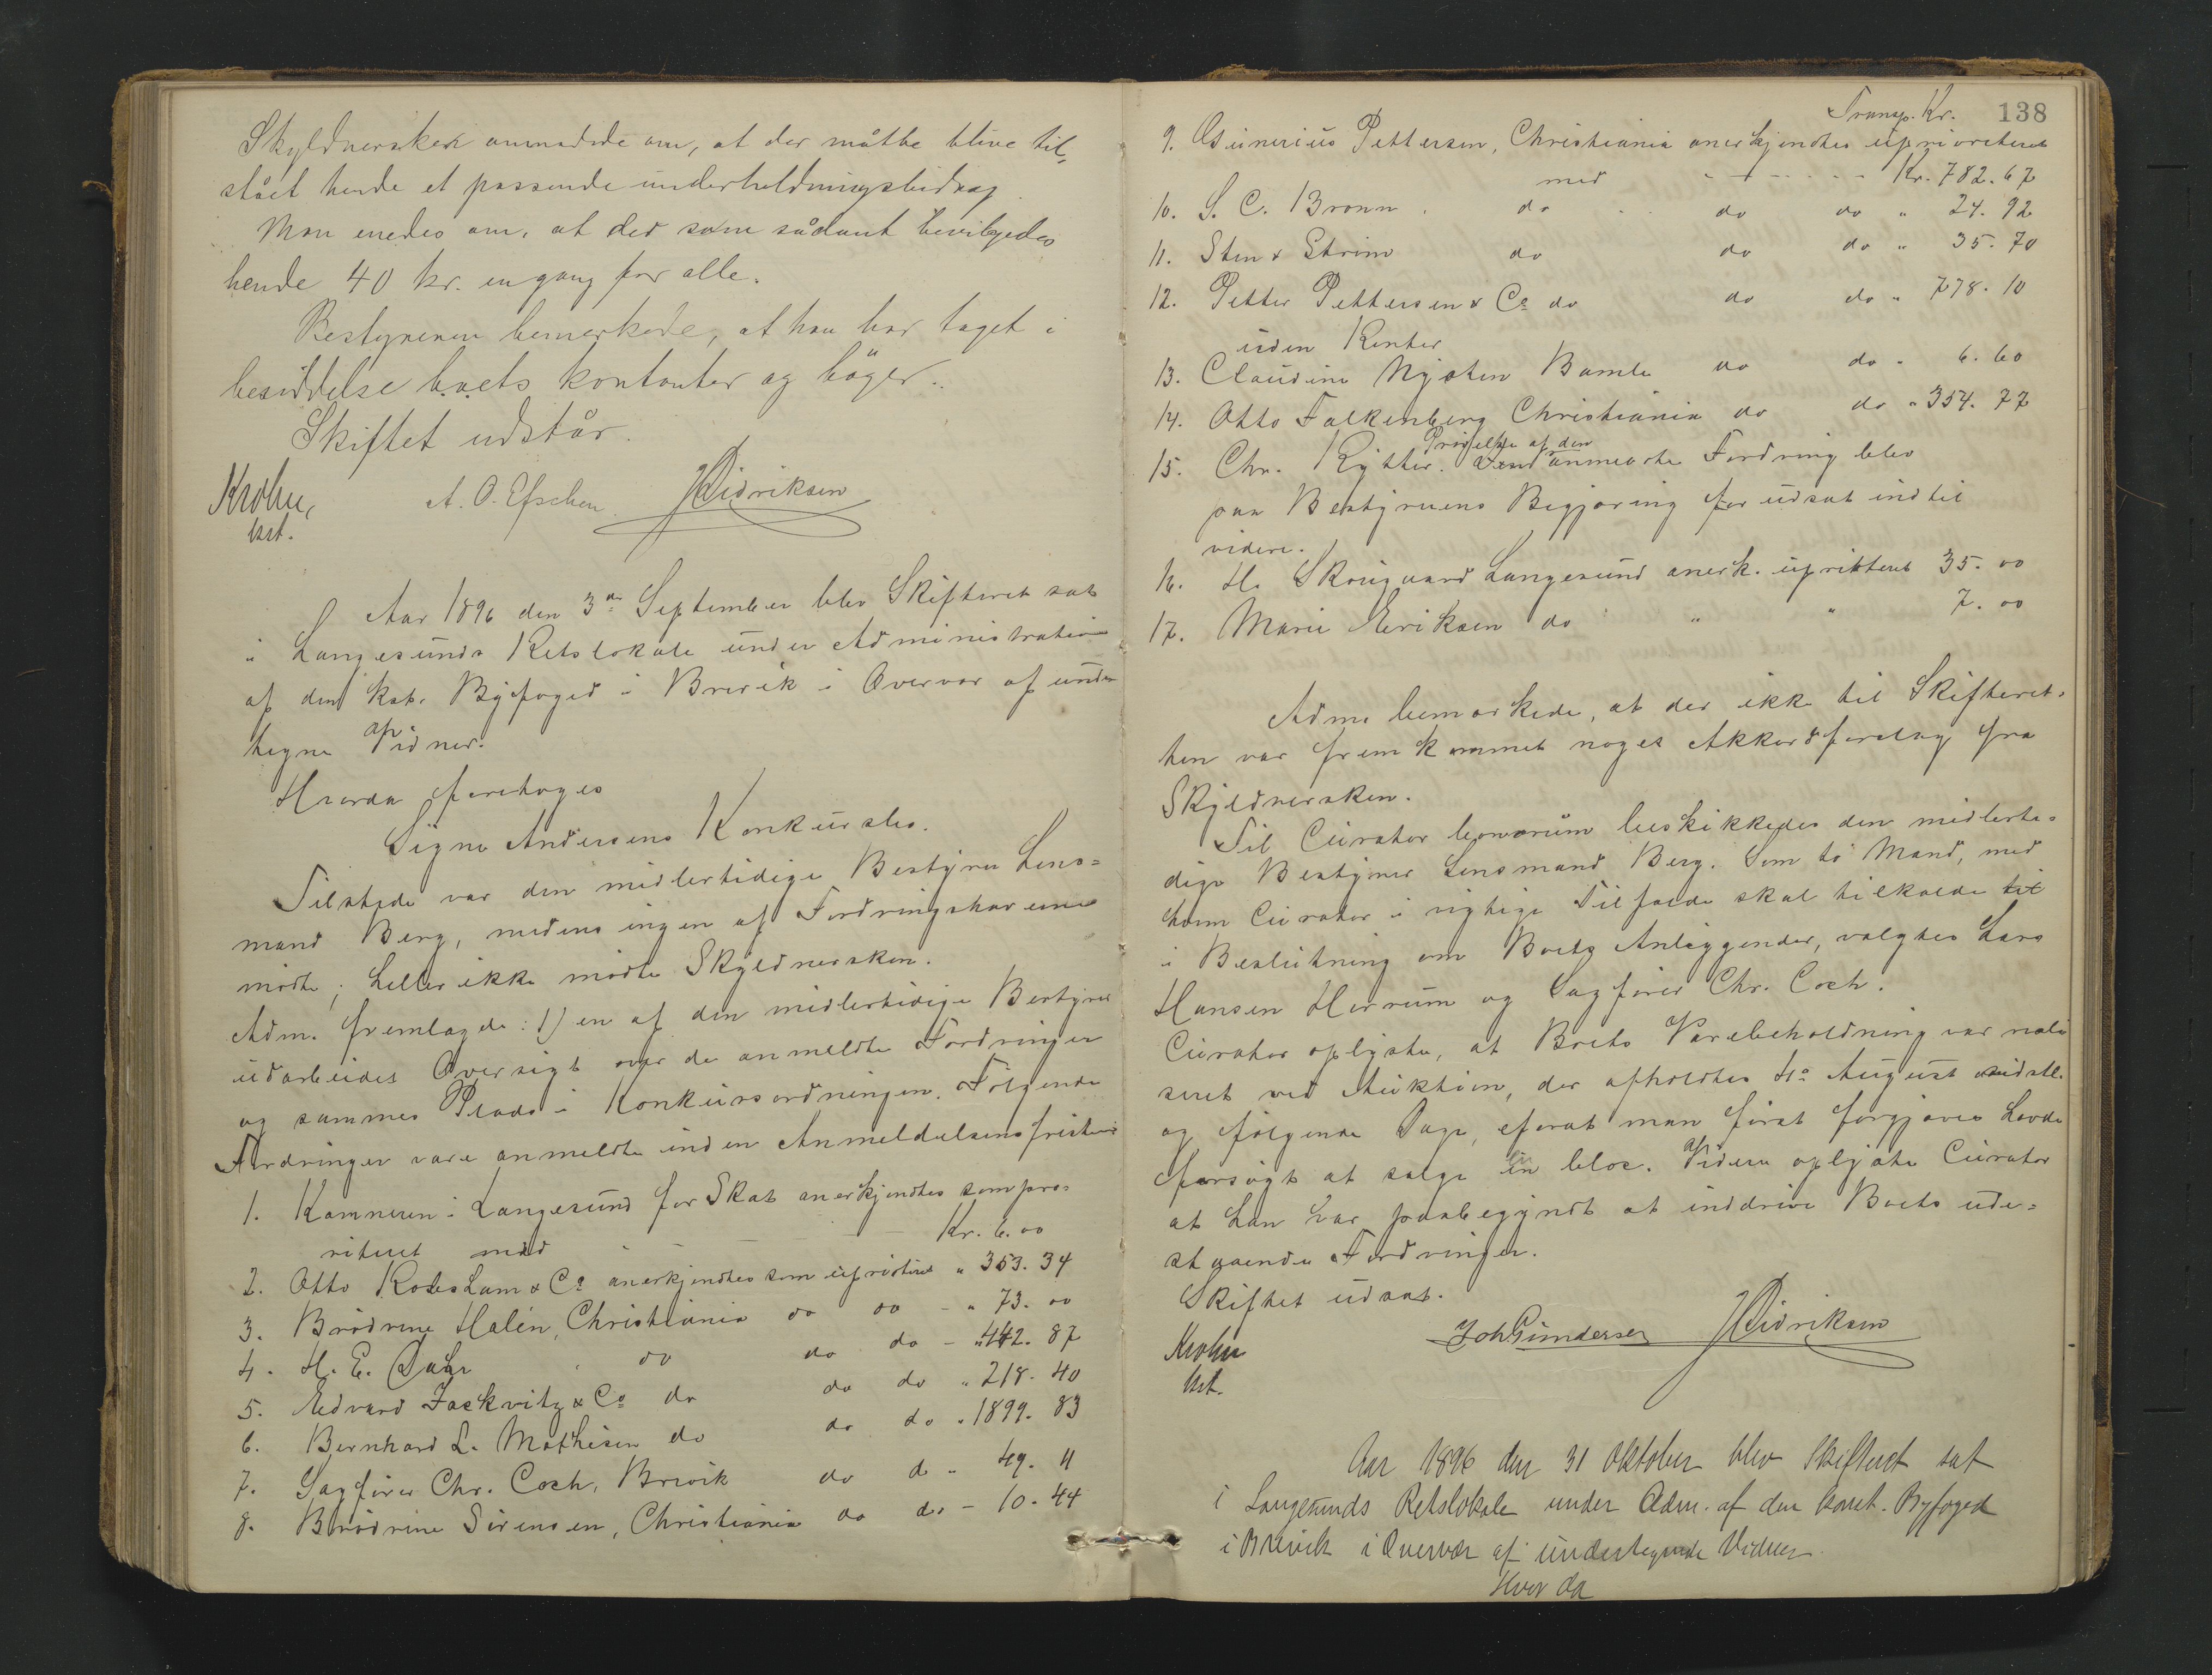 Skyldnersken anmodede om, at der måtte blive til-
stået hende et passende underholdningsbidrag
Man enedes om, at der som sådant bevilgedes
hende 40 kr. en gang for alle.
Bestyreren bemerkede, at han har taget i
besiddelse boets kontanter og bøger.
Skiftet udstår.
Krohn, A. O. Efschen JDidriksen
kst.
Aar 1896 den 3die September blev Skifteret sat
i Langesunds Retslokale under Administration
af den kst. Byfoged i Brevik i Overvær af under
tegne Vidner.
Hvorda foretoges
Signe Andersens Konkursbo.
Tilstede var den midlertidige Bestyrer Lens=
mand Berg, medens ingen af Fordringshaverne
mødte; heller ikke mødte Skyldnersken.
Adm. fremlagde: 1) en af den midlertidige Bestyrer
udarbeidet Oversigt over de anmeldte Fordringer
og sammes Plads i Konkursordningen. Følgende
Fordringer vare anmeldte inden Anmeldelsensfristens
1. Kæmneren i Langesund for Skat anerkjendtes som prio-
riteret med - - - Kr. 6.00
2. Otto Robsham & Co anerkjendtes som uprioriteret " 353.34
3. Brødrene Halén, Christiania do do - " 73.00
4. H. E. Dahr do do do - " 442.87
5. Edvard Jackwitz & Co do do do " 218.40
6. Bernhard L. Mathisen do do do " 1899.83
7. Sagfører Chr. Coch, Brevik do do " 49.11
8. Brødrene Sørensen, Christiania do do - 10.44
138
Transp. Kr.
9. Asinerius Pettersen, Christiania anerkjendtes uprioriteret
med - - - - Kr. 782.67
10. S. C. Bronn do do do " 24.92
11. Sten & Strøm do do do " 35.70
12. Petter Pettersen & Co do do do " 778.10
uden Renter
13. Claudine Nysten Bamle do do " 6.60
14. Otto Falkenberg Christiania do do " 354.77
Prøvelse af den
15. Chr. Rytter. anmeldte Fordring blev
paa Bestyrerens Begjæring for udsat indtil
videre.
16. H. Skougaard Langesund anerk. uprittert 35.00
17. Marie Eriksen do " " 7.00
Adm. bemærkede, at der ikke til Skifteret-
ten var fremkommet noget Akkordforslag fra
Skyldnersken.
Til Curator bonorum beskikkedes den midlerti-
dige Bestyrer Lensmand Berg. Som to Mænd, med
hvem Curator i vigtige Tilfælde skal tilkalde til
i Beslutning om Boets Anliggender, valgtes Lars
Hansen Herrum og Sagfører Chr. Coch.
Curator oplyste, at Boets Varebeholdning var reali
seret ved Auktion, der afholdtes 4de August sidstl.
og følgende Dage, efterat man først forgjæves havde
forsøgt at sælge en bloc. Videre oplyste Curator
at han har paabegyndt at inddrive Boets ude=
staaende Fordringer.
Skiftet udsat.
Krohn Joh Gundersen JDidriksen
kst.
Aar 1896 den 31 Oktober blev Skifteret sat
i Langesunds Retslokale under Adm. af den const. Byfoged
i Brevik i Overvær af undertegnede Vidner
Hvor da